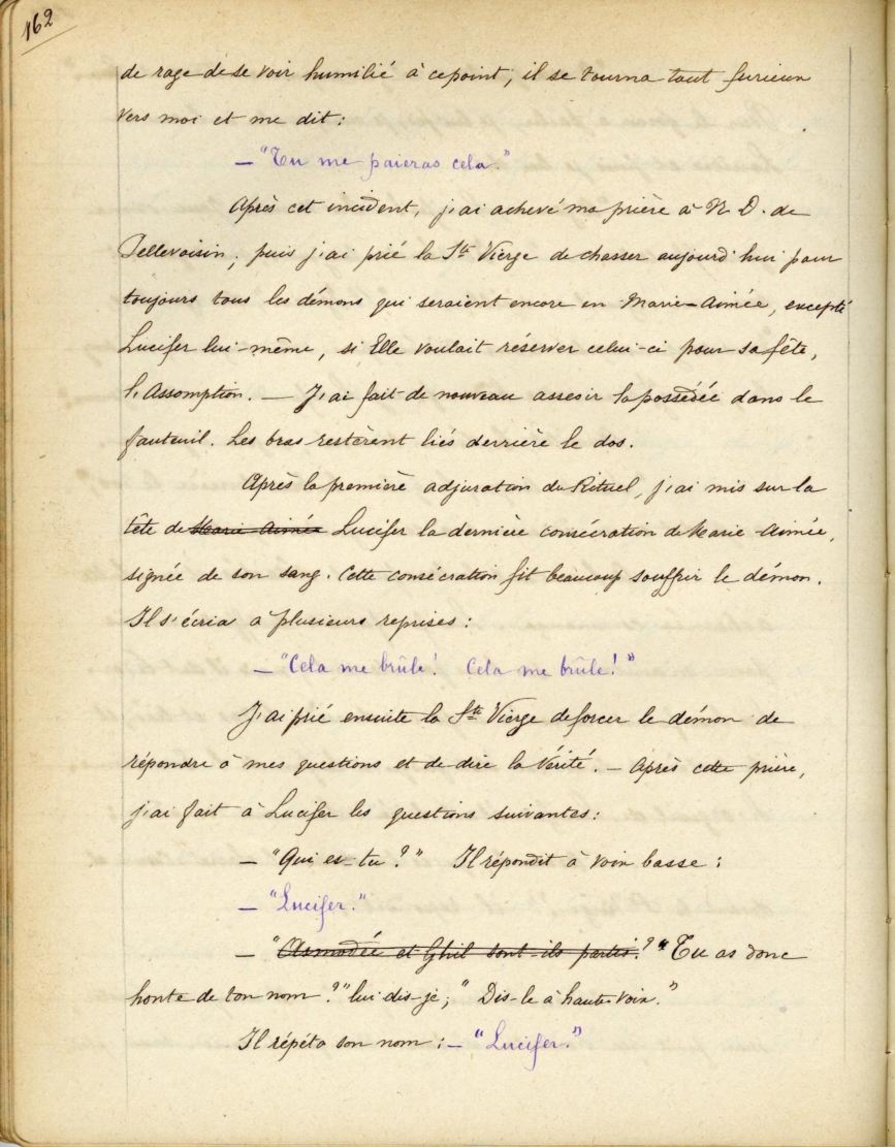 162
de rage de se voir humilié à ce point ; il se tourna tout furieux
vers moi et me dit :
— "Tu me paieras cela."
Après cet incident, j'ai achevé ma prière à N. D. de
Pellevoisin ; puis j'ai prié la Ste Vierge de chasser aujourd'hui pour
toujours tous les démons qui seraient encore en Marie-Aimée, excepté
Lucifer lui-même, si Elle voulait réserver celui-ci pour sa fête,
l'Assomption. — J'ai fait de nouveau asseoir la possédée dans le
fauteuil. Les bras restèrent liés derrière le dos.
Après la première adjuration du Rituel, j'ai mis sur la
tête de Marie-Aimée Lucifer la dernière consécration de Marie-Aimée,
signée de son sang. Cette consécration fit beaucoup souffrir le démon.
Il s'écria à plusieurs reprises :
— "Cela me brûle! Cela me brûle!"
J'ai prié ensuite la Ste Vierge de forcer le démon de
répondre à mes questions et de dire la vérité. — Après cette prière,
j'ai fait à Lucifer les questions suivantes :
— "Qui es-tu ?" Il répondit à voix basse :
— "Lucifer."
— "Asmodée et Ghil sont-ils partis ? "Tu as donc
honte de ton nom ?" lui dis-je ; "Dis-le à haute voix."
Il répéta son nom : — "Lucifer."